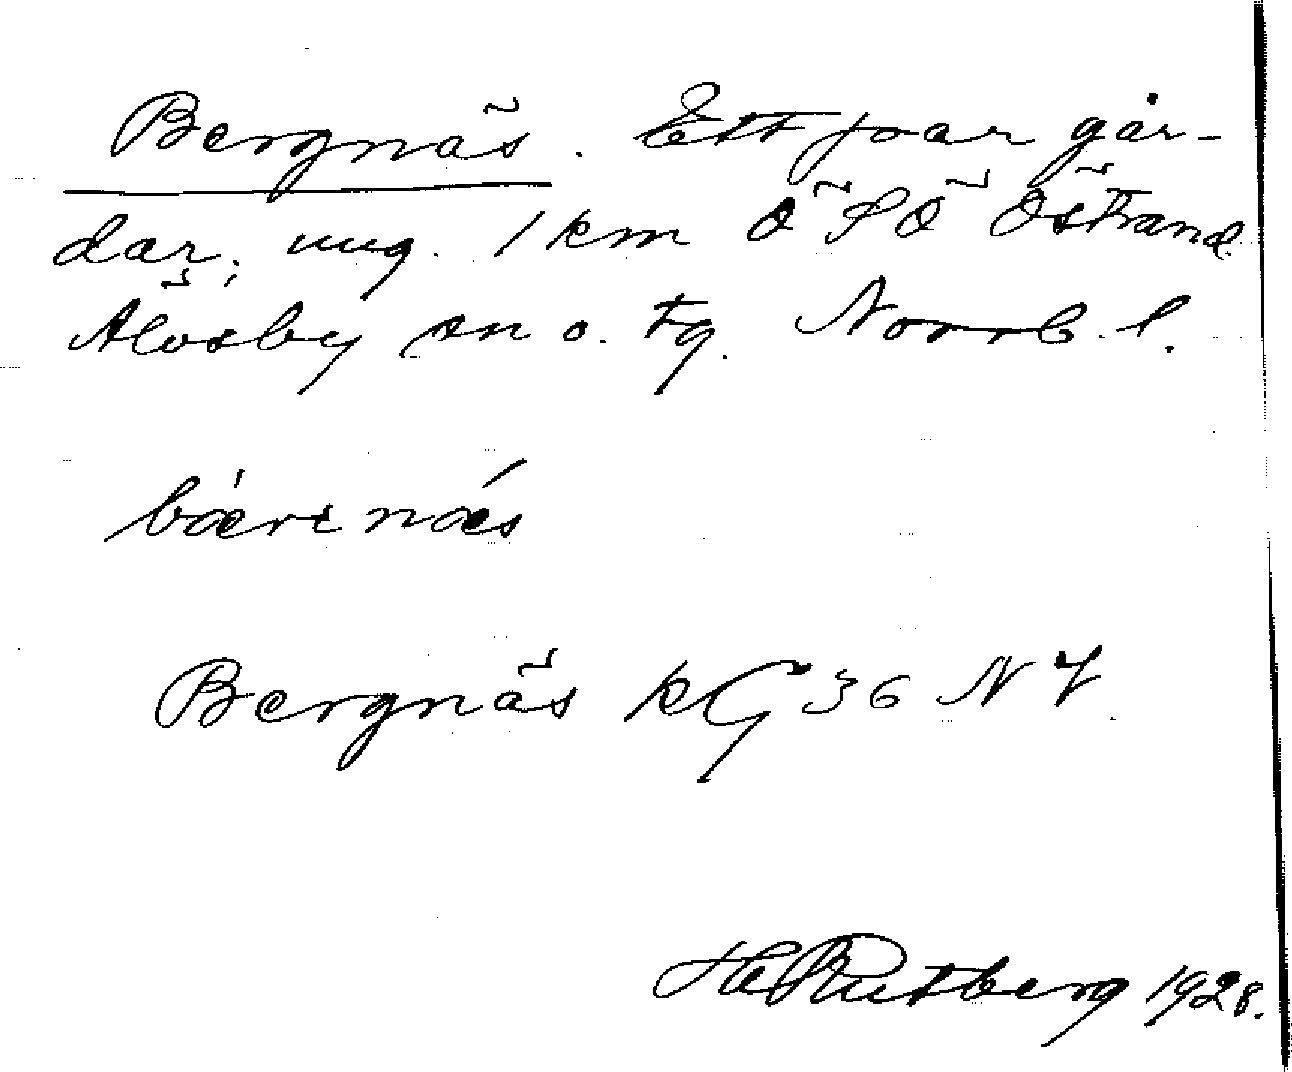 Bergnäs. Ett par går-
dar, ung. 1 km ÖSÖ Östrand
Älvsby sn o. tg. Norrb. l.
bæ̀rɩnǽs
Bergnäs kG 36 NV
H Rutberg 1928.